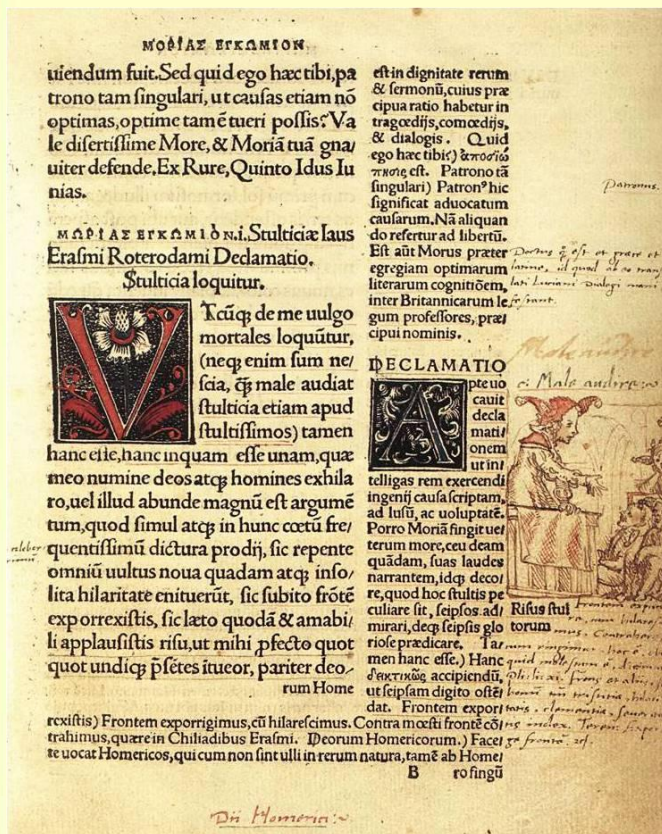 ΜΩΡΙΑΣ ΕΓΚΩΜΙΟΝ
uiendum fuit. Sed quid ego hæc tibi, pa
trono tam singulari, ut causas etiam nō
optimas, optime tamē tueri possis? Va
le disertissime More, & Moriā tuā gna/
uiter defende, Ex Rure, Quinto Idus Iu
nias.
ΜΩΡΙΑΣ ΕΓΚΩΜΙΟΝ.i. Stulticiæ laus
Erasmi Roterodami Declamatio.
Stulticia loquitur.
VTcūq; de me uulgo
mortales loquūtur,
(neq; enim sum ne/
scia, q̄ male audiat
stulticia etiam apud
stultissimos) tamen
hanc esse, hanc inquam esse unam, quæ
meo numine deos atq; homines exhila
ro, uel illud abunde magnū est argumē
tum, quod simul atq; in hunc cœtū fre/
quentissimū dictura prodij, sic repente
omniū uultus noua quadam atq; inso/
lita hilaritate enituerūt, sic subito frōtē
exporrexistis, sic læto quodā & amabi/
li applausistis risu, ut mihi ꝓfecto quot
quot undiq; p̄sētes ītueor, pariter deo/
rum Home
est in dignitate rerum
& sermonū, cuius præ
cipua ratio habetur in
tragœdijs, comœdijs,
& dialogis. Quid
ego hæc tibi) ἀποσιώ
πησις est. Patrono tā
singulari) Patronꝰ hic
significat aduocatum
causarum. Nā aliquan
do refertur ad libertū.
Est aūt Morus præter
egregiam optimarum
literarum cognitiōem,
inter Britannicarum le/
gum professores, præ/
cipui nominis.
DECLAMATIO
Apte uo
cauit
decla
mati/
onem
ut in/
telligas rem exercendi
ingenij causa scriptam,
ad lusū, ac uoluptatē.
Porro Moriā fingit ue/
terum more, ceu deam
quādam, suas laudes
narrantem, idq; deco/
re, quod hoc stultis pe
culiare sit, seipsos ad/
mirari, deq; seipsis glo
riose prædicare. Ta/
men hanc esse.) Hanc
δεικτικῶς accipiendū,
ut seipsam digito ostē/
dat. Frontem expor/
rexistis) Frontem exporrigimus, cū hilarescimus. Contra mœsti frontē cō/
trahimus, quære in Chiliadibus Erasmi. Deorum Homericorum.) Facei
te uocat Homericos, qui cum non sint ulli in rerum natura, tamē ab Home/
B ro fingū
Patronus.
Male audire
Risus stul
torum
Dii Homerici